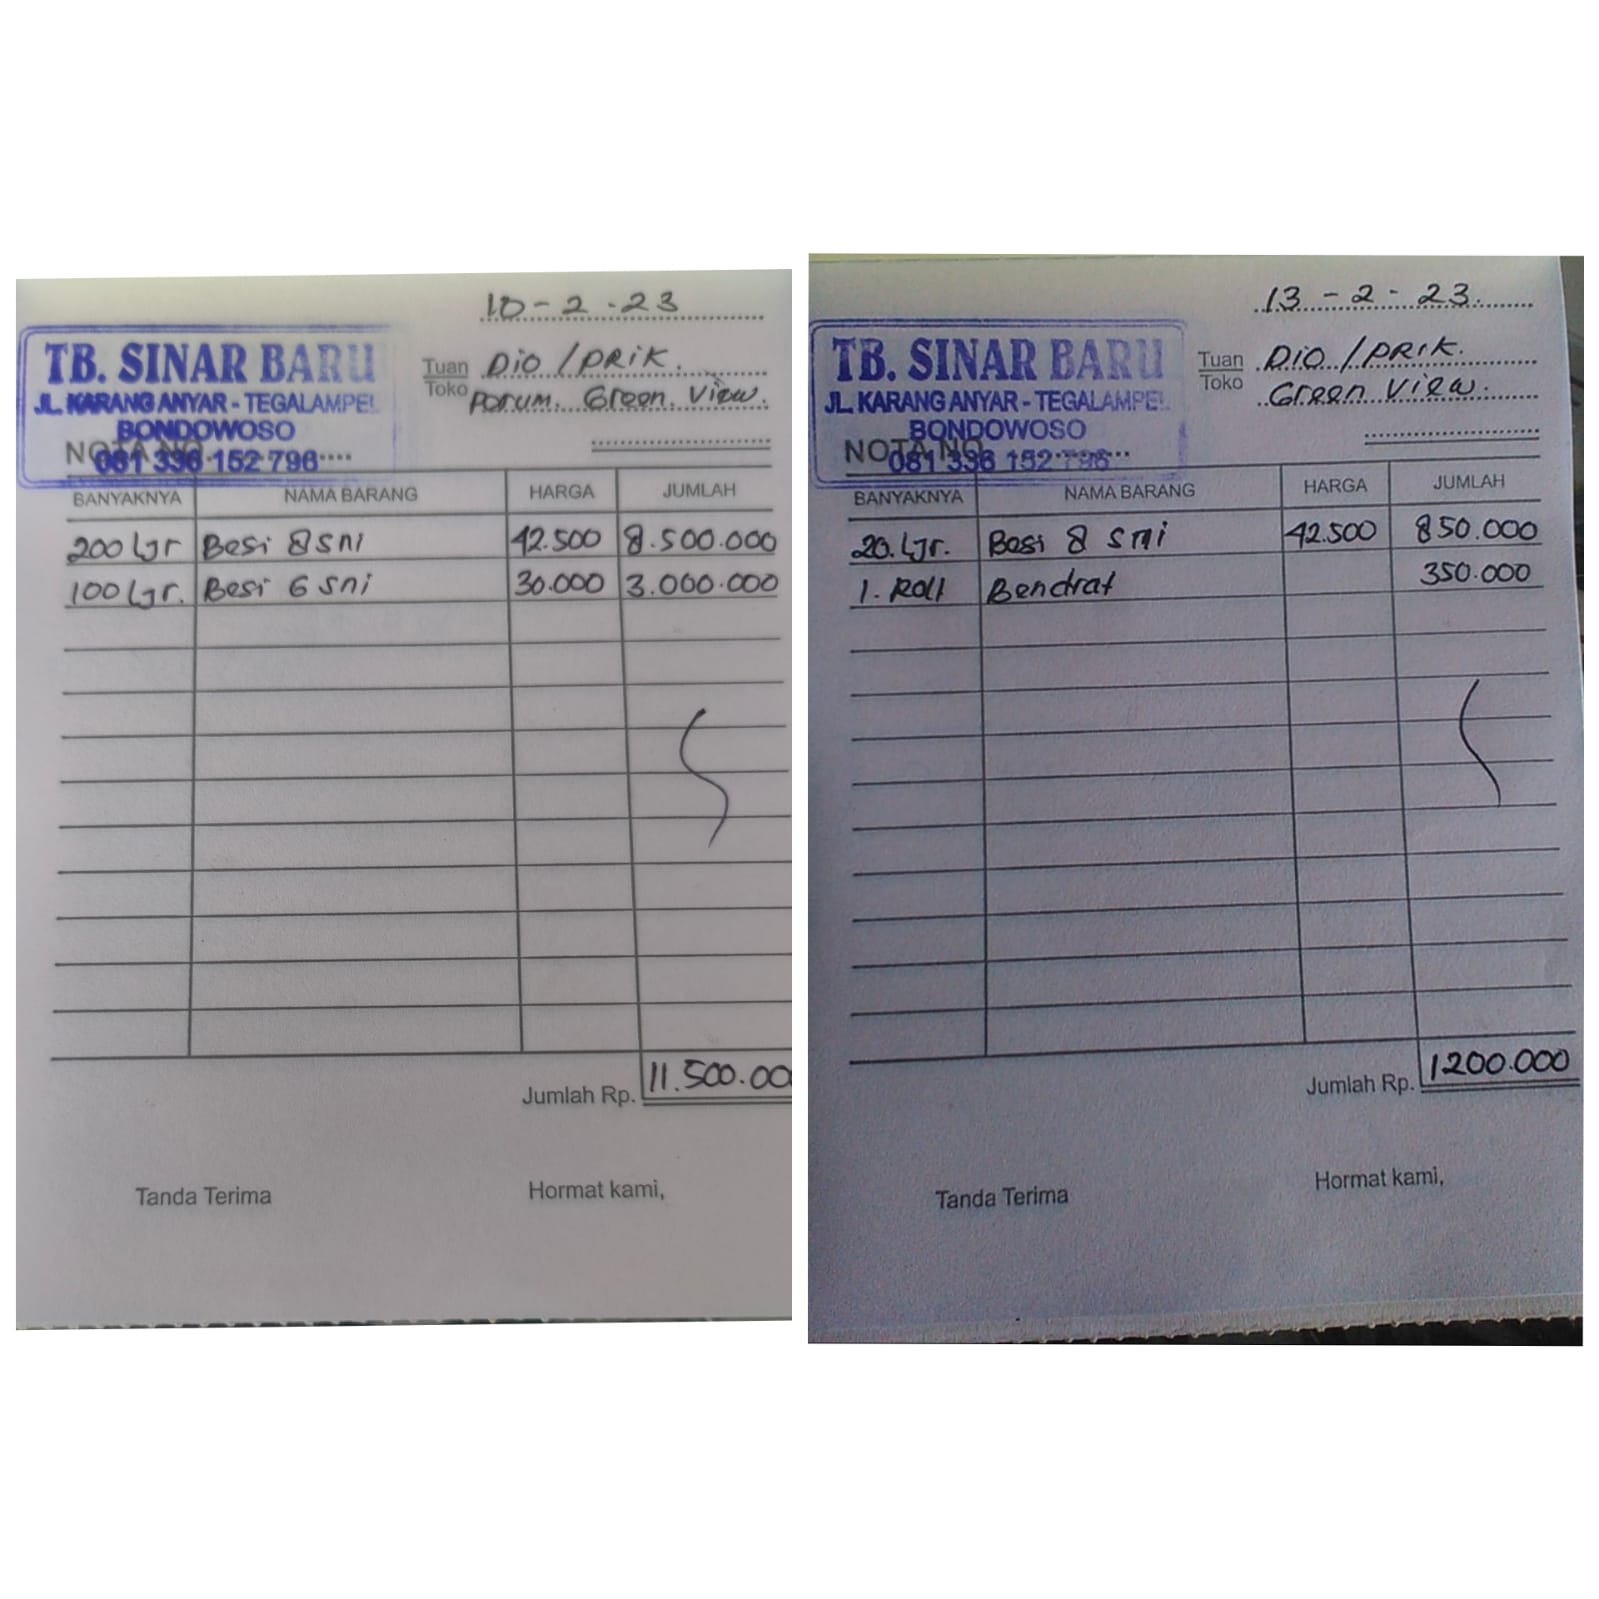 10-2-23
TB. SINAR BARU
JL. KARANG ANYAR - TEGALAMPEL
BONDOWOSO
081 336 152 796
Tuan
Toko
Dio / PRIK.
Perum. Green. View.
NOTA NO.
BANYAKNYA NAMA BARANG HARGA JUMLAH
200 Ljr Besi 8 sni 42.500 8.500.000
100 Ljr. Besi 6 sni 30.000 3.000.000
Jumlah Rp. 11.500.00
Tanda Terima Hormat kami,
13-2-23.
TB. SINAR BARU
JL. KARANG ANYAR - TEGALAMPEL
BONDOWOSO
081 336 152 796
Tuan
Toko
Dio / PRIK.
Green View.
NOTA NO.
BANYAKNYA NAMA BARANG HARGA JUMLAH
20. Ljr. Besi 8 sni 42.500 850.000
1. Roll Bendrat 350.000
Jumlah Rp. 1200.000
Tanda Terima Hormat kami,